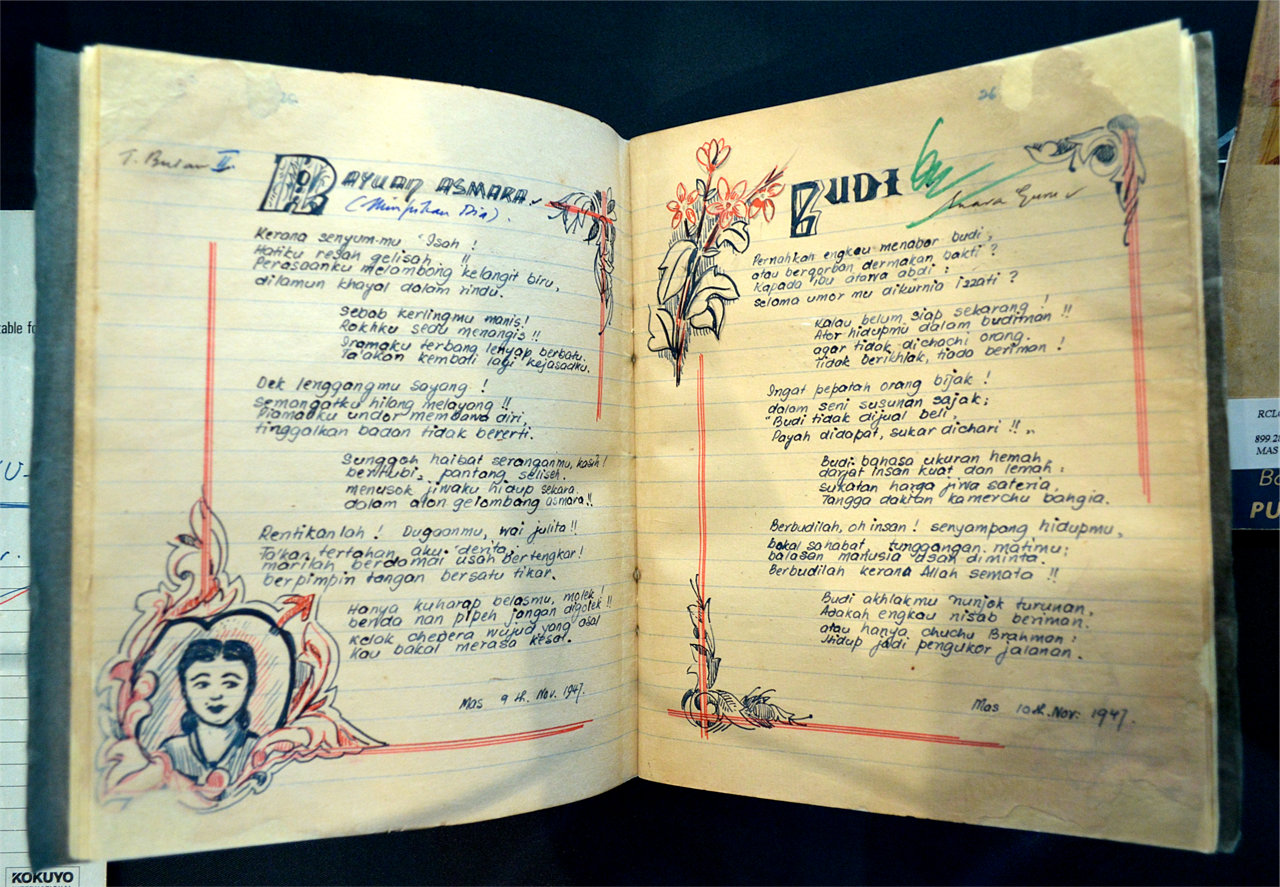 26
T. Bulan II.
RAYUAN ASMARA
(Mimpikan Dia).
Kerana senyum-mu "Isah !
Hatiku resah gelisah !!
Perasaanku melambong kelangit biru,
dilamun khayal dalam rindu.
Sebab kerlingmu manis!
Rokhku sedu menangis!!
Iramaku terbang lenyap berbatu.
Ta'akan kembali lagi kejasadku.
Dek lenggangmu sayang !
semangatku hilang melayang !!
Diamaku undor membawa diri,
tinggalkan badan tidak bererti.
Sunggoh haibat seranganmu, kasih !
bertubi, pantang seliseh.
menusok jiwaku hidup sekara,
dalam alon gelombang asmara.!!
Rentikanlah ! Dugaanmu, wai julita !!
Ta'kan tertahan aku denta,
marilah berdamai usah bertengkar !
berpimpin tangan bersatu tikar.
Hanya kuharap belasmu, molek !
benda nan pipeh jangan digolek !!
kelak chedera wujud yang asal
Kau bakal merasa kesal.
Mas 9 th. Nov. 1947.
26
BUDI
Suara Guru
Pernahkan engkau menabor budi,
atau bergorban dermakan bakti ?
Kapada ibu atawa abdi :
selama umor mu dikurnia izzati ?
Kalau belum, siap sekarang !
Ator hidupmu dalam budiman !!
agar tidak dichachi orang.
Tidak berikhlak, tiada beriman !
Ingat pepatah orang bijak !
dalam seni susunan sajak;
"Budi tidak dijual beli,
Payah didapat, sukar dichari !!"
Budi bahasa ukuran hemah,
darjat insan kuat dan lemah :
sukatan harga jiwa sateria,
Tangga dakian kamerchu bahgia.
Berbudilah, oh insan ! senyampang hidupmu,
bakal sahabat, tunggangan matimu;
balasan manusia usah diminta.
Berbudilah kerana Allah semata !!
Budi akhlakmu nunjok turunan,
Adakah engkau nisab beriman.
atau hanya chuchu Brahman :
Hidup jadi pengukor jalanan.
Mas 10 th. Nov. 1947.
table fo
KOKUYO
RCLO
899.28
MAS
Ba
PU